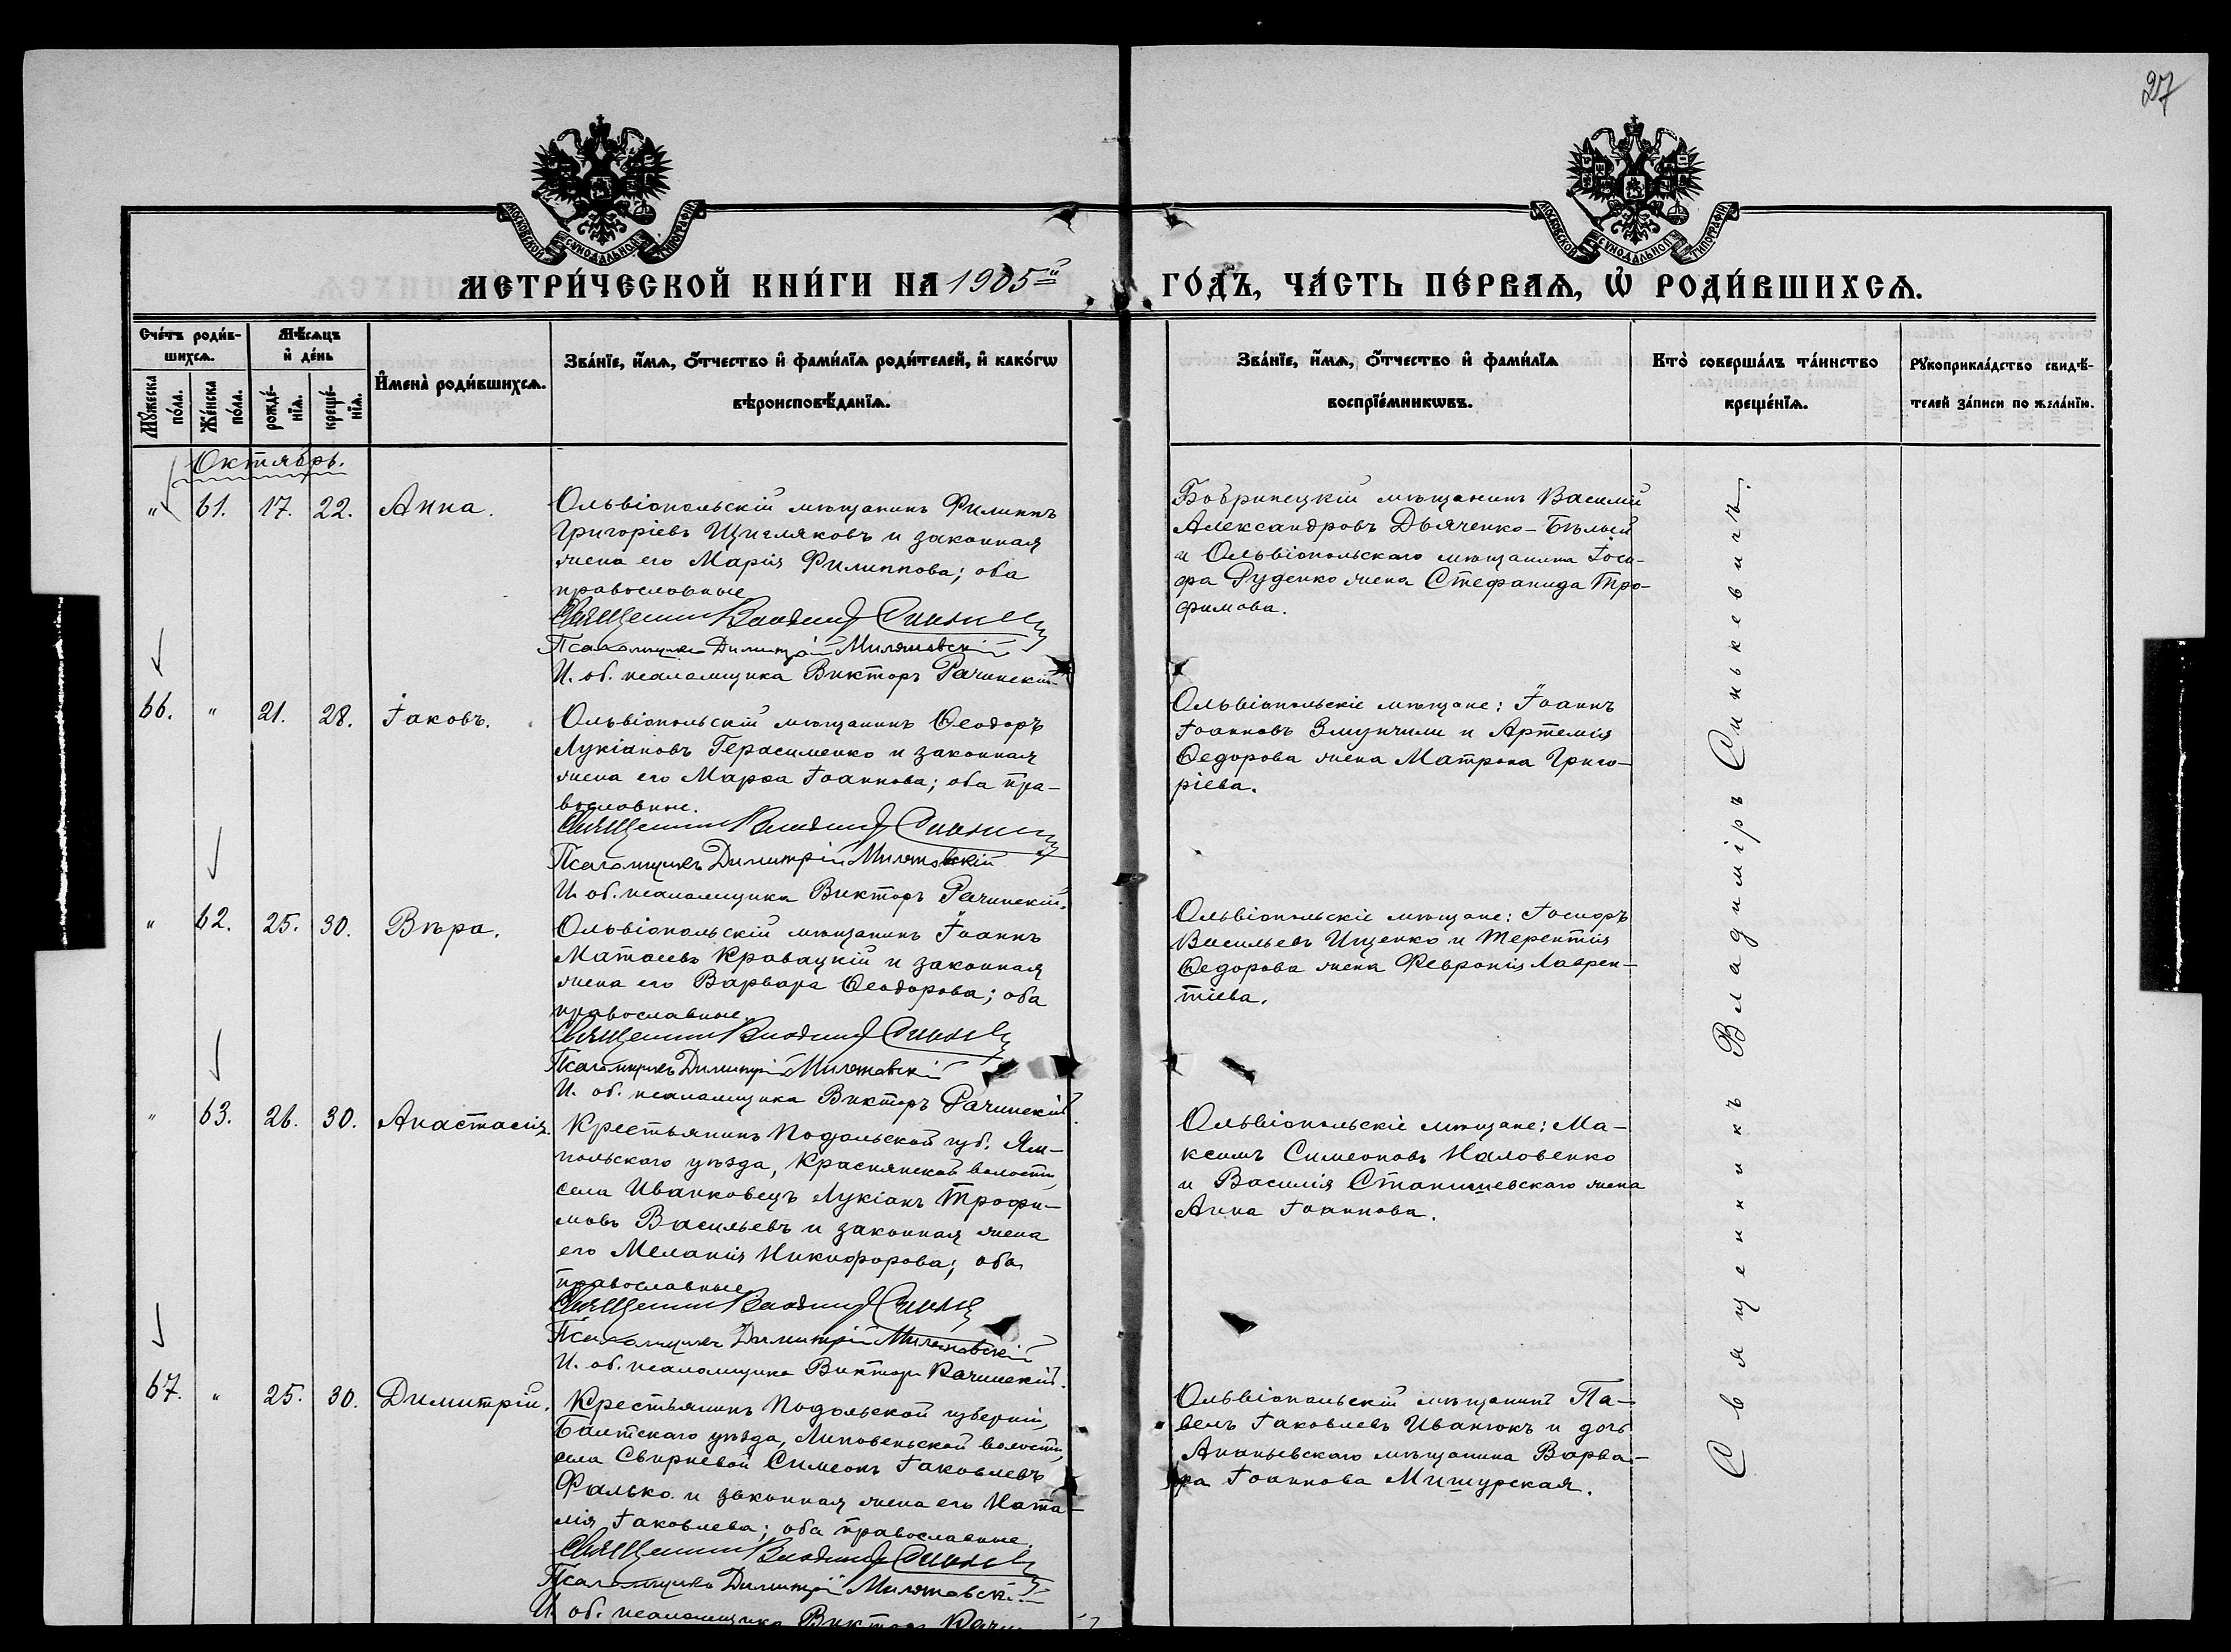 27
МОСКОВСКОЙ СУНОДАЛЬНОЙ ТИПОГРАФІИ
МОСКОВСКОЙ СУНОДАЛЬНОЙ ТИПОГРАФІИ
МЕТРИ́ЧЕСКОЙ КНИ́ГИ НА 1905й ГО́ДЪ, ЧА́СТЬ ПЕ́РВАѦ, Ѡ РОДИ́ВШИХСѦ.
Сче́тъ роди́в-
шихсѧ.
Мѣ́сѧцъ
и де́нь
Мꙋ́жеска
по́ла.
Же́нска
по́ла.
рожде́-
нїѧ.
креще́-
нїѧ.
И҆мена̀ роди́вшихсѧ.
Зва́нїе, и҆́мѧ, ѻ҆́тчество и҆ фами́лїѧ роди́телей, и҆ како́гѡ
вѣроисповѣ́данїѧ.
Зва́нїе, и҆́мѧ, ѻ҆́тчество и҆ фами́лїѧ
воспрїе́мникѡвъ.
Кто̀ соверша́лъ та́инство
креще́нїѧ.
Рꙋкоприкла́дство свидѣ́-
телей за́писи по жела́нїю.
Октябрь.
" 61. 17. 22. Анна.
Ольвіопольскій мѣщанинъ Филиппъ
Григоріевъ Щигляковъ и законная
жена его Марія Филиппова; оба
православные
Священникъ Владиміръ Синькевичъ
Псаломщикъ Димитрій
И. об. псаломщика Викторъ Рачинскій
Бобринецкій мѣщанинъ Василій
Александровъ Дьяченко-Бѣлый
и Ольвіопольскаго мѣщанина Іоси-
фа Руденко жена Стефанида Тро-
фимова.
66. " 21. 28. Іаковъ.
Ольвіопольскій мѣщанинъ Ѳеодоръ
Лукіановъ Герасименко и законная
жена его Марѳа Іоаннова; оба пра-
вославные.
Священникъ Владиміръ Синькевичъ
Псаломщикъ Димитрій
И. об. псаломщика Викторъ Рачинскій.
Ольвіопольскіе мѣщане: Іоаннъ
Іоанновъ и Артемія
Ѳедорова жена Матрона Григо-
ріева.
" 62. 25. 30. Вѣра.
Ольвіопольскій мѣщанинъ Іоаннъ
Матѳеевъ Кравацкій и законная
жена его Варвара Ѳеодорова; оба
православные.
Священникъ Владиміръ Синькевичъ
Псаломщикъ Димитрій
И. об. псаломщика Викторъ Рачинскій
Ольвіопольскіе мѣщане: Іосифъ
Васильевъ Ищенко и Терентія
Ѳедорова жена Февронія Лаврен-
тіева.
" 63. 26. 30. Анастасія.
Крестьянинъ Подольской губ. Ям-
польскаго уѣзда, Краснянской волости,
села Иванковецъ Лукіанъ Трофи-
мовъ Васильевъ и законная жена
его Меланія Никифорова; оба
православные
Священникъ Владиміръ Синькевичъ
Псаломщикъ Димитрій
И. об. псаломщика Викторъ Рачинскій.
Ольвіопольскіе мѣщане: Ма-
ксимъ Симеоновъ Наловенко
и Василія Станишевскаго жена
Анна Іоаннова.
67. " 25. 30. Димитрій.
Крестьянинъ Подольской губерніи,
Балтскаго уѣзда, Липовеньской волости,
села Свирневой Симеонъ Іаковлевъ
Фалько и законная жена его Ната-
лія Іаковлева; оба православные.
Священникъ Владиміръ Синькевичъ
Псаломщикъ Димитрій
И. об. псаломщика Викторъ
Ольвіопольскій мѣщанинъ Па-
велъ Іаковлевъ Иванюкъ и дочь
Ананьевскаго мѣщанина Варва-
ра Іоаннова Мишурская.
Священникъ Владиміръ Синькевичъ.